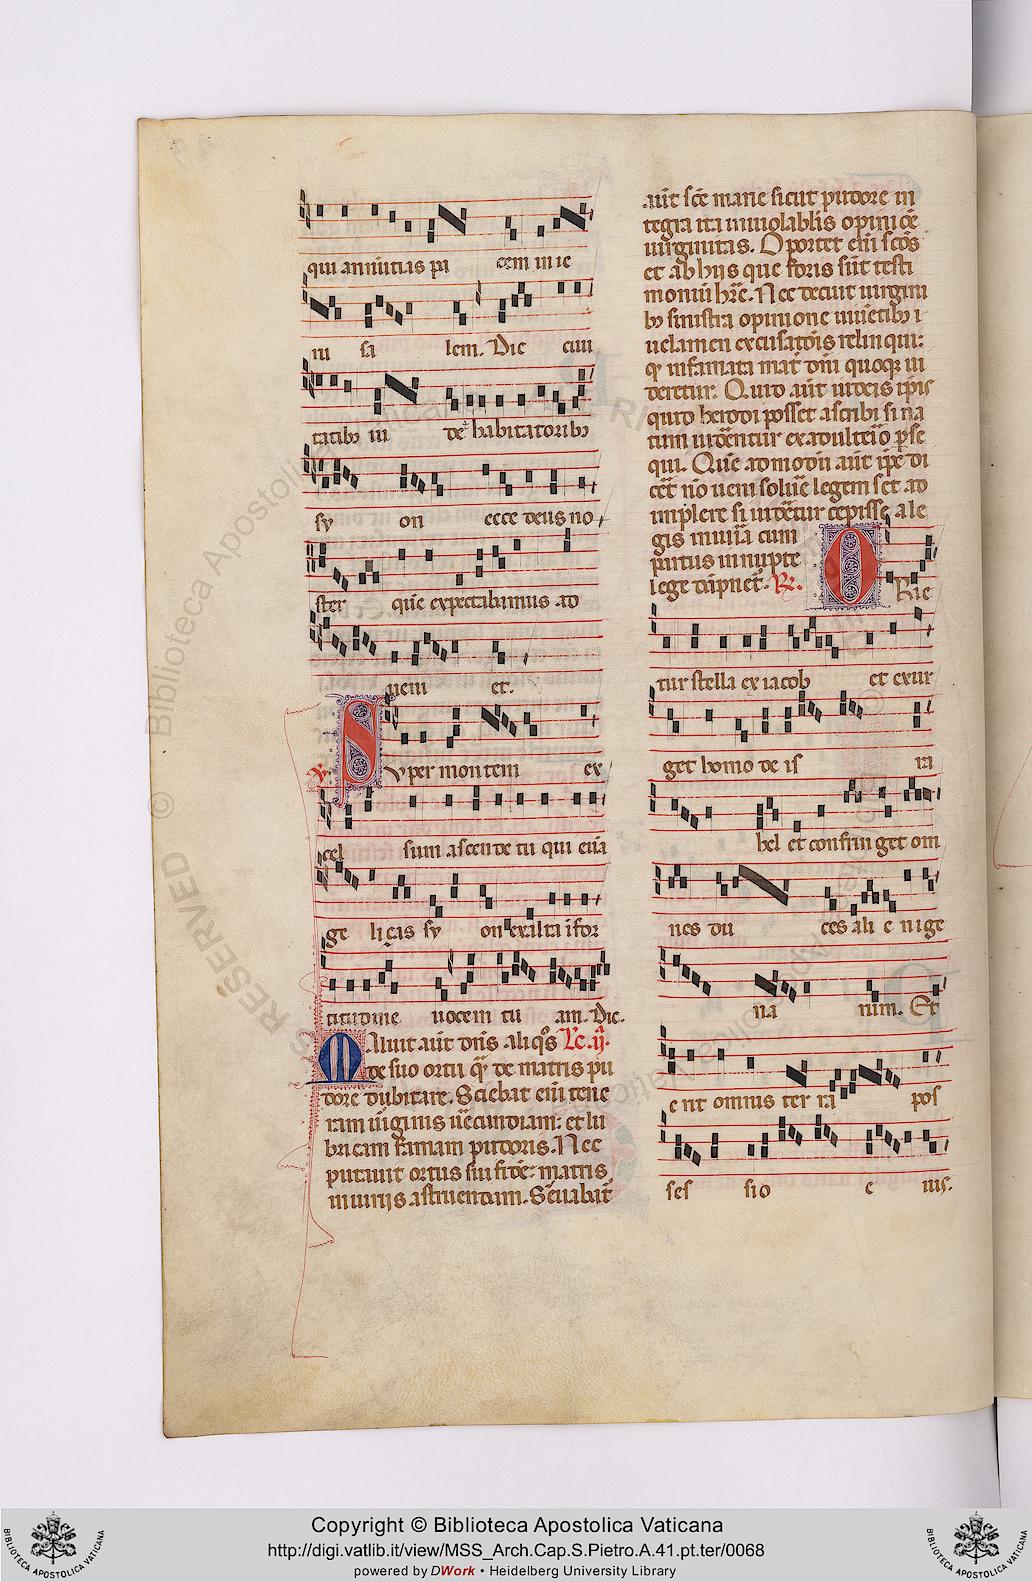 qui annūtias pa cem in ie
ru sa lem. Dic ciui
tatib; iu de habitatorib;
sy on ecce deus no
ster quē expectabamus ad
ueniet.
℣. Super montem ex
cel sum ascende tu qui euā
ge licas sy on exalta ī for
titudine uocem tu am. Dic.
Maluit aūt dn̄s aliq̄s Lc̄. ij.
de suo ortu q̄ de matris pu
dore dubitare. Sciebat eni᷑ tene
ram uirginis uerecundiam: et lu
bricam famam pudoris. Nec
putauit ortus sui fidē matris
iniuriis astruendam. Seruabat᷑
aūt sc̄e marie sicut pudore in
tegra ita inuiolabilis opinione
uirginitas. Oportet eni᷑ sc̄os
et ab hiis que foris sūt testi
moniū habere. Nec decuit uirgini
b; sinistra opinione uiuētib; i
uelamen excusatōis relinqui:
qʳ infamata mat᷑ dn̄i quoqꝫ ui
deretur. Quid aūt iudeis
quid herodi posset ascribi si na
tum uiderentur ex adulterio p̄se
qui. Que admodū aūt ip̄e di
cēt nō ueni soluere legem set ad
implere si uideretur cepisse a le
gis iniuria cum
partus innupte
lege dāpnet᷑. ℟.
Orie
tur stella ex iacob et exur
get homo de is ra
hel et confringet om
nes du ces alienige
na rum. Et
erit omnis terra pos
ses sio e ius.
Copyright © Biblioteca Apostolica Vaticana
http://digi.vatlib.it/view/MSS_Arch.Cap.S.Pietro.A.41.pt.ter/0068
powered by DWork • Heidelberg University Library